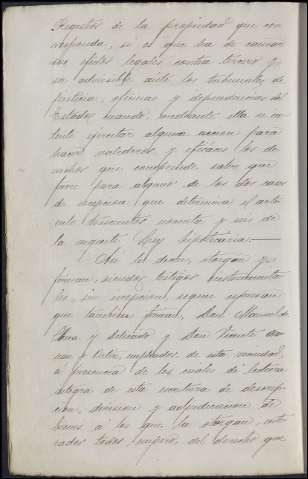 Registro de la propiedad que cor-
responda, si es que ha de causar
sus efectos legales contra tercero y
ser admisible ante los tribunales de
justicia, oficinas y dependencias del
Estado, cuando mediante ella se in-
tente ejercitar alguna accion para
hacer valederos y eficaces los de-
rechos que comprende, salvo que
fuere para alguno de los dos casos
de escepcion que determina el arti-
culo trescientos noventa y seis de
la vigente Ley hipotecaria.
Asi lo dicen, otorgan y
firman, siendo testigos instrumenta-
les, sin escepcion, segun espresan
que tambien firman, Don Manuel de
y Delicado y Don Vicente
y Ortiz, empleados, de esta vecindad,
a presencia de los cuales di lectura
integra de esta escritura de descrip-
cion, division y adjudicacion de
bienes a los que la otorgan, ente-
rados todos del derecho que